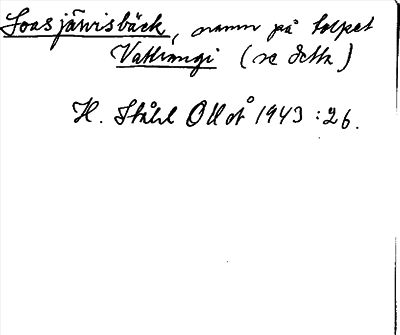 Loasjärvisbäck, namn på torpet
Vathangi (se detta)
H. Ståhl OUoÅ 1943 : 26.